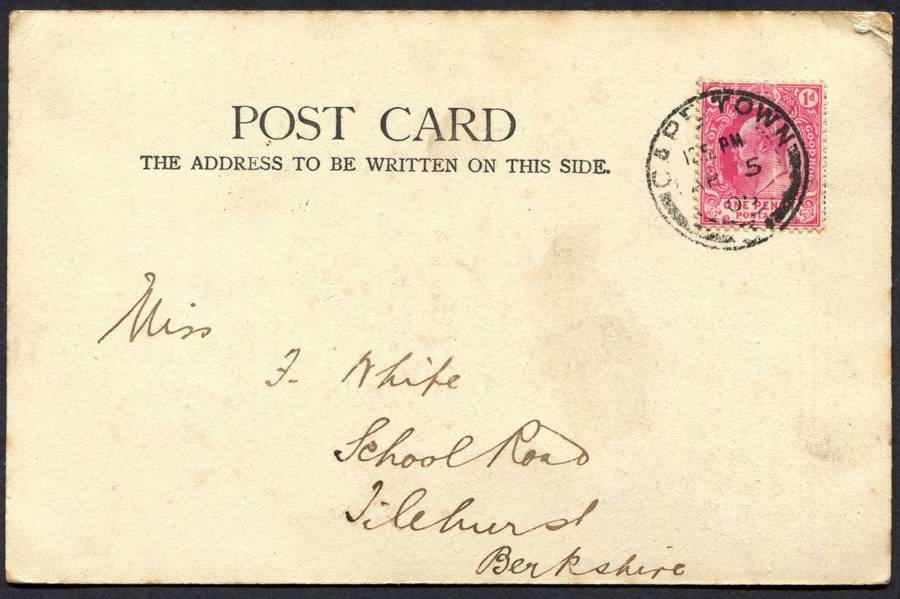 POST CARD
THE ADDRESS TO BE WRITTEN ON THIS SIDE.
1d
CAPE TOWN
PM
5
ONE PENNY
POSTAGE
Miss
F. White
School Road
Tilehurst
Berkshire